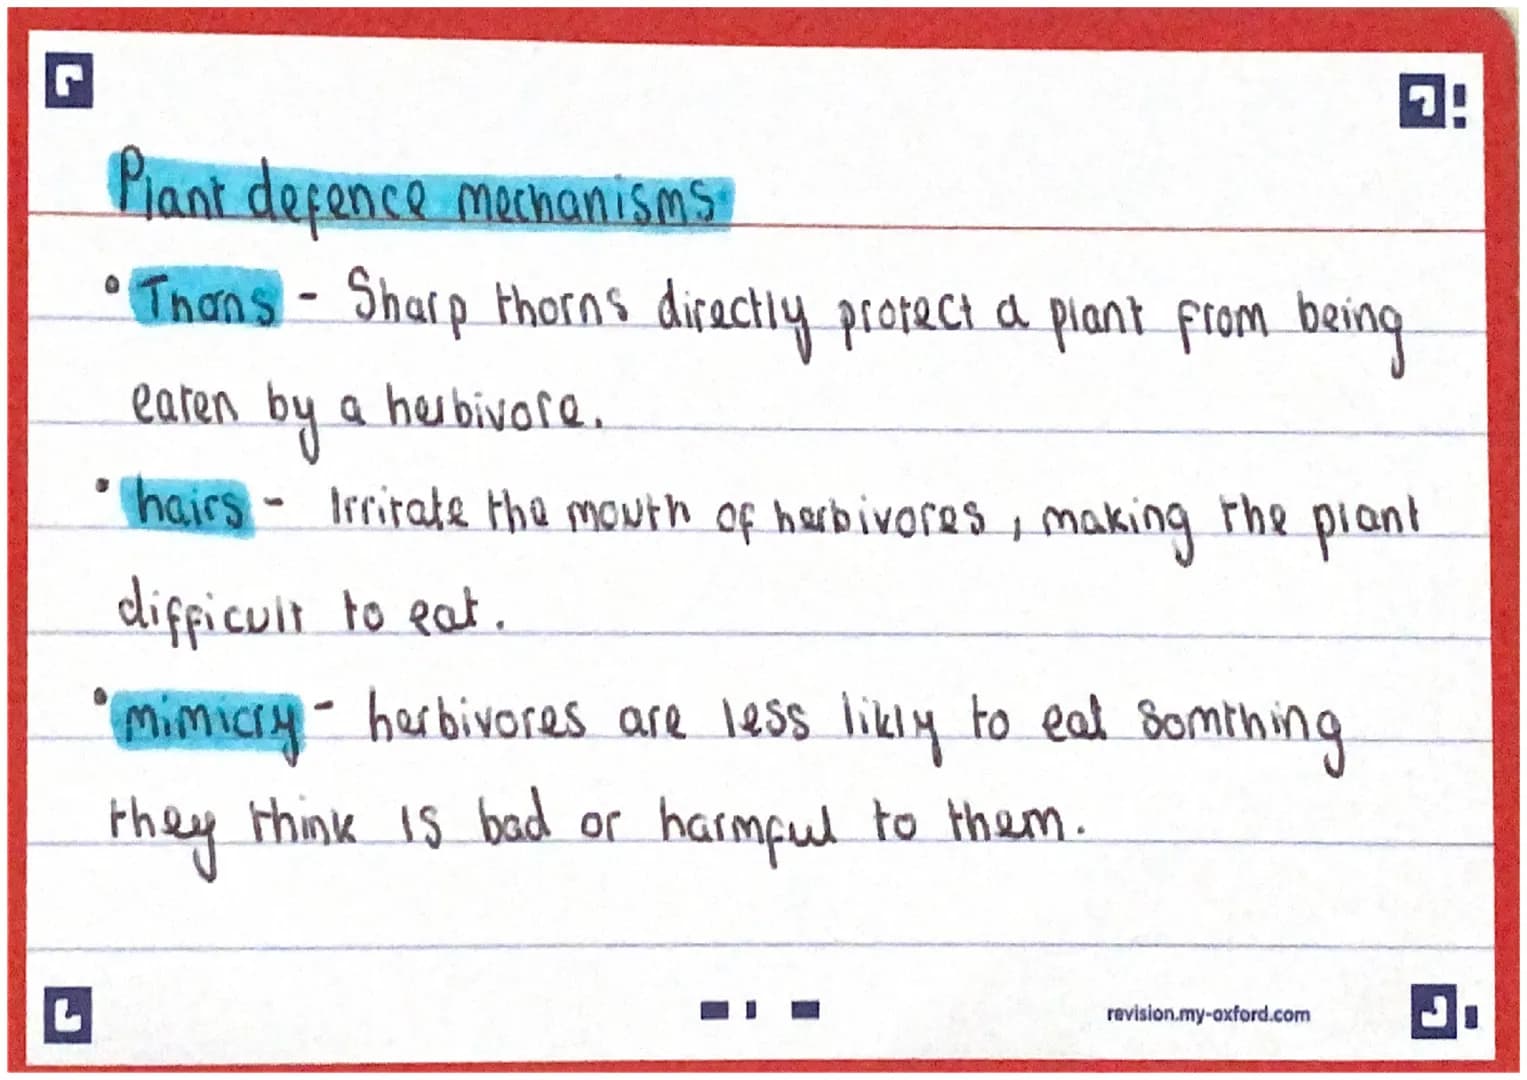 Plant defence mechanisms
• Thons - Sharp thorns directly protect a plant from being
eaten by a herbivore.
• hairs - Irritate the mouth of herbivores, making the plant
difficult to eat.
• mimicry - herbivores are less likly to eat somthing
they think is bad or harmful to them.
revision.my-oxford.com